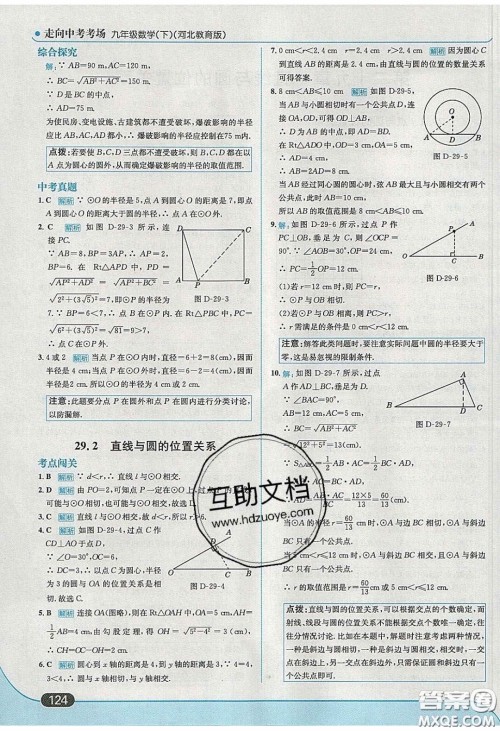 走向中考考场 九年级数学(下)(河北教育版)
综合探究
解:∵AB=90 m,AC=120 m,
∴BC=√AB²+AC²=150 m.
∵D是BC的中点,
∴AD=75 m.
为使民房、变电设施、古建筑都不遭受破坏,爆破影响的半径
应比AB,AC,AD都小,∴爆破影响的半径应控制在75 m内.
点拨:若要使B,C,D三点都不遭受破坏,则B,C,D都在以
A点为圆心的圆外,从而确定爆破影响的半径的取值范围.
中考真题
1.C 解析 ∵⊙O的半径是6,点A到圆心O的距离是7,即点
A到圆心O的距离大于圆的半径,∴点A在⊙O外.
2.C 解析 如图 D-29-3 所示,连
接PC.
∵AB=8,BP=3AP,∴AP=2,
BP=6.在Rt△APD中,PD=
√AP²+AD²=
√2²+(3√5)²=7,即⊙P的半径为
图 D-29-3
7.∵BP=6<7,∴点B在⊙P内.在Rt△PBC中,PC=
√6²+(3√5)²=√81=9>7,
∴点C在⊙P外.
3.4或2 解析 当点P在⊙O内时,直径=6+2=8(cm),
∴半径=4 cm;当点P在⊙O外时,直径=6-2=4(cm),
∴半径=2 cm.
注意:此题要分点P在圆外和点P在圆内进行分类讨论,
以防漏解.
29.2 直线与圆的位置关系
考点闯关
1.B 解析 ∵d<r,∴直线l与⊙O相交.
2.D 解析 由PO=2,可知点P一定在⊙O上,
可能与⊙O相切,也可能与⊙O相交,故选D.
3.C 解析 直线l与⊙O相交,故d<r,所以r>6.
4.C 解析 如图 D-29-4,过点C作
CD⊥AO于点D.
∵∠O=30°,OC=6,
∴DC=3,∴以点C为圆心,半径
为3的圆与OA的位置关系是相
切.故选C.
图 D-29-4
5.B 解析 连接OA(图略),则在Rt△OAH中,OA=5 cm,AH=
½AB=4 cm,由勾股定理,得OH=√5²-4²=3(cm),
∴CH=OC-OH=2 cm.
6.C 解析 圆心到x轴的距离是4,到y轴的距离是3,4=4,
3<4,∴圆O与x轴相切,与y轴相交.故选C.
124
7.0 cm<r<2.4 cm r=2.4 cm r>2.4 cm 解析 因为圆心C
到直线AB的距离是2.4 cm,由直线与圆的公共点的数量
可得答案.
8.8 cm<AB≤10 cm 解析 如图 D-29-5,
当AB与小圆相切时有一个公共点D,连
接OA,OD,可得OD⊥AB,
∴D为AB的中点,即AD=BD.
在Rt△ADO中,OD=3 cm,OA=5 cm,
∴AD=4 cm,
∴AB=2AD=8 cm.
图 D-29-5
当AB经过同心圆的圆心时,弦AB最大且与小圆相交有两个
公共点,此时AB=10 cm,
所以AB的取值范围是8 cm<AB≤10 cm.
9.解:如图 D-29-6 所示,过点P作
PC⊥OB,垂足为C,则∠OCP=
90°.∵∠AOB=30°,OP=24 cm,
∴PC=½OP=12 cm.
图 D-29-6
(1)当r=12 cm时,r=PC,
∴⊙P与OB相切.
(2)若⊙P与OB相离,则r<PC,
∴r需满足的条件是0 cm<r<12 cm.
注意:解答此类问题时,要注意实际问题中圆的半径大于
零,这是易忽视的限制条件.
10.解:如图 D-29-7,过点A作
AD⊥BC于点D.
∵∠BAC=90°,
∴BC=√AB²+AC²=
√12²+5²=13(cm).
图 D-29-7
半径为5 cm<r≤12 cm时,⊙A与斜边BC只有一个公共点.
∴r的取值范围是r=60/13 cm或5 cm<r≤12 cm.
点拨:直线与圆的位置关系,可以根据交点的个数确定,而
射线、线段与圆的位置关系不能根据交点个数唯一确定,往
往分情况讨论.比如在本题中,解题时注意考虑两种情况,
一种是斜边与圆相切,一种是斜边与圆相交,相交时,一交
点在斜边上,另一交点在斜边外,只需保证圆和斜边只有
一个公共点即可.
互助文档
www.hdzuoye.com
答案圈
MXQE.COM